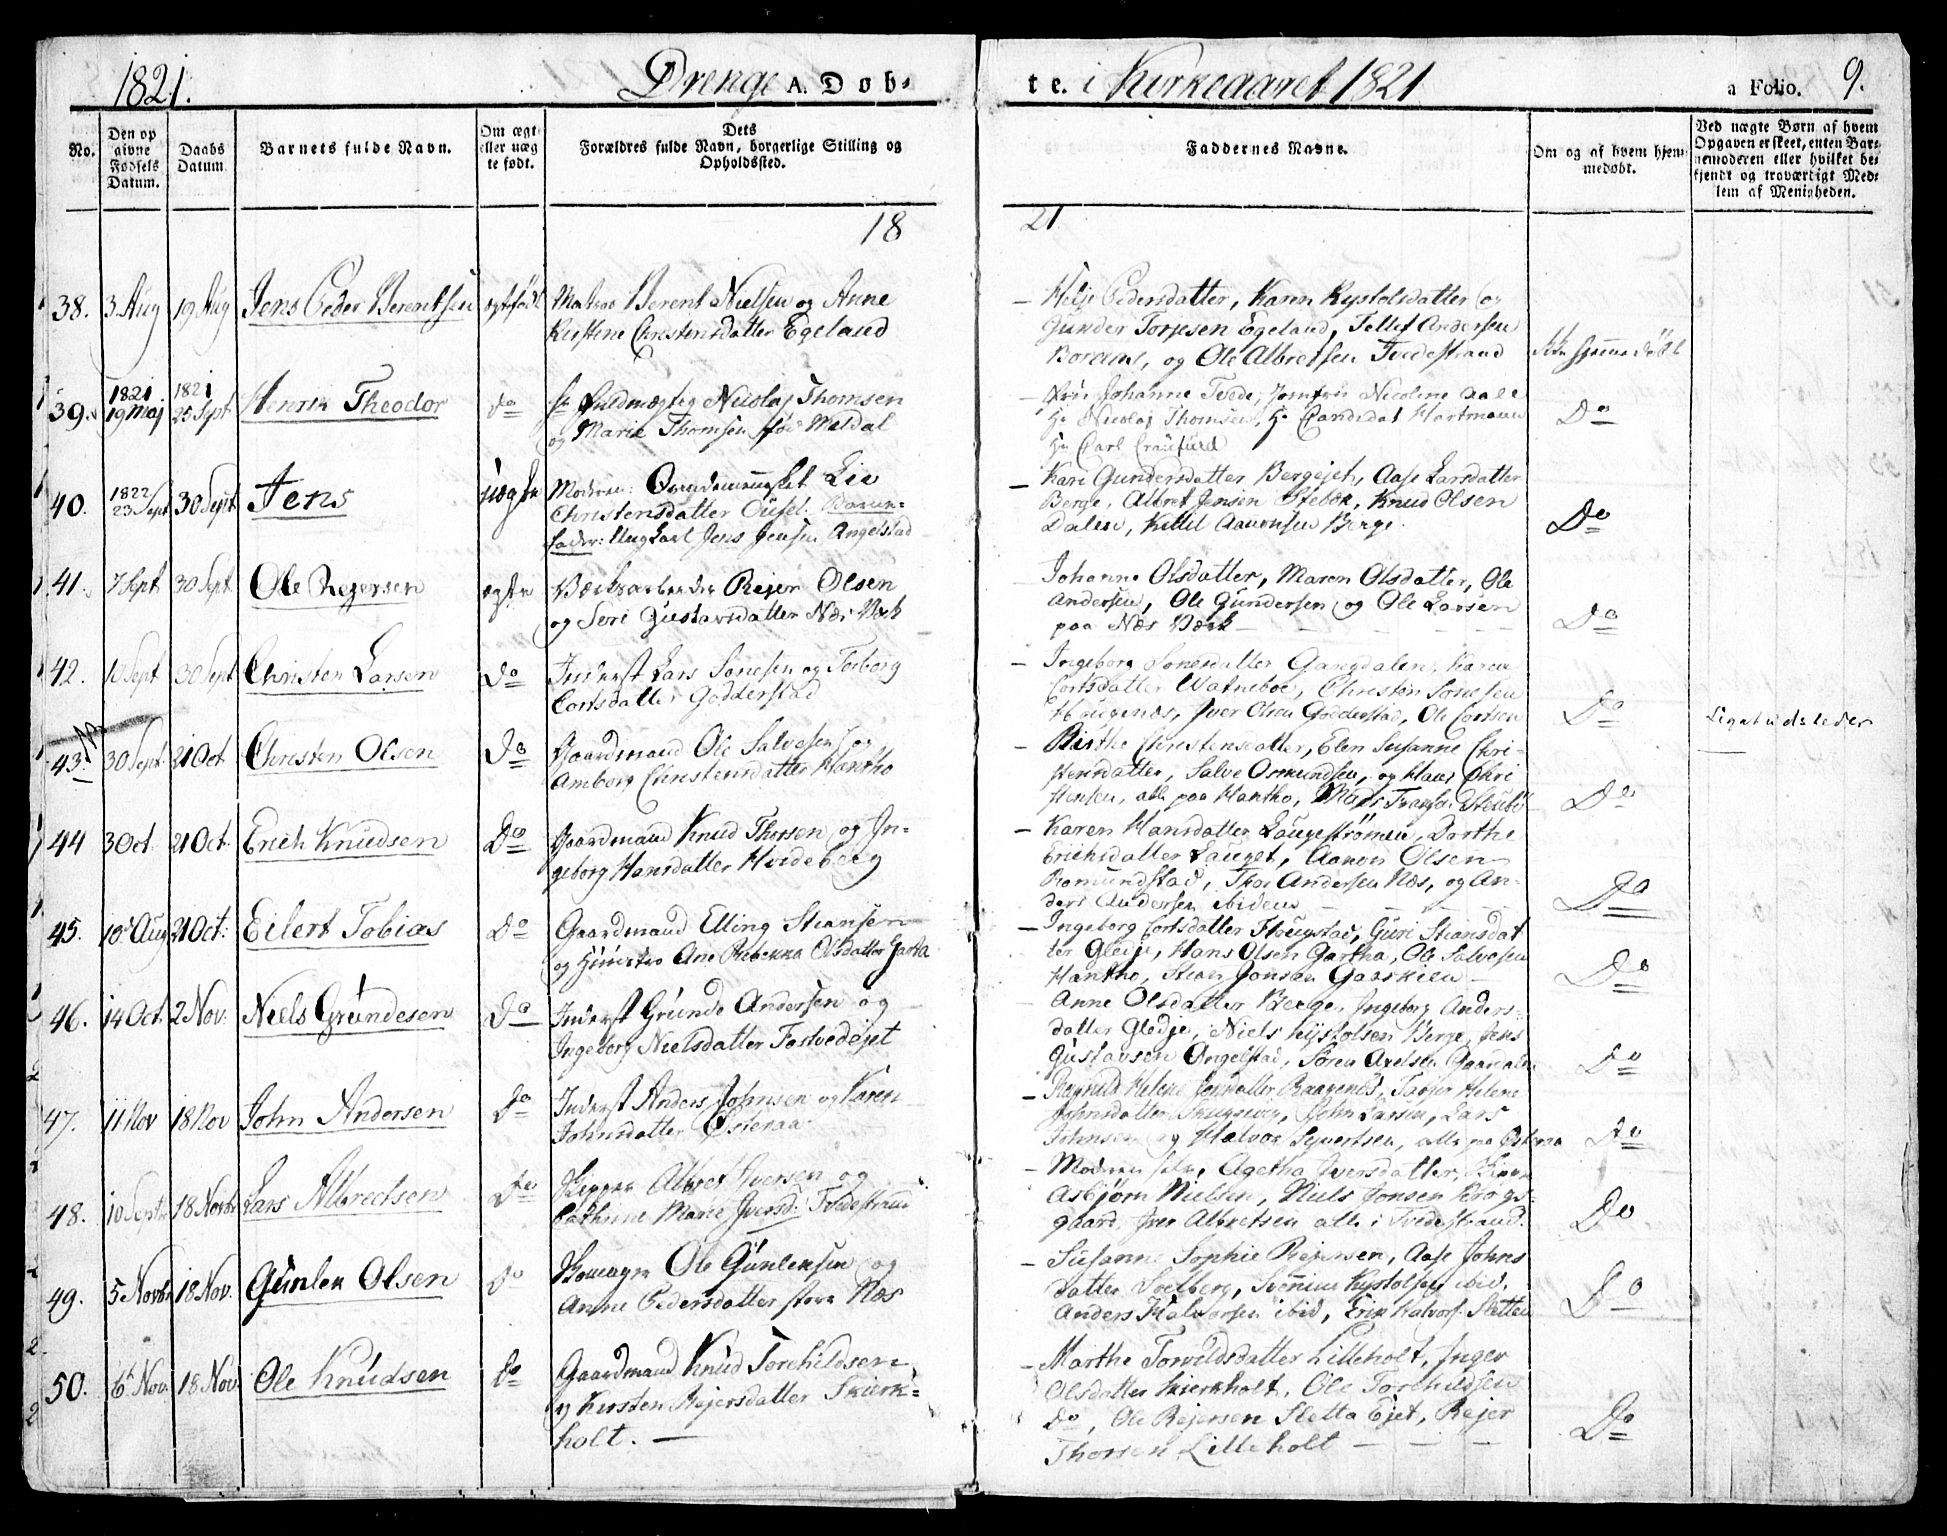 1821.
Drenge A. Døb-
te. i Kirkeaaret 1821
a Folio. 9.
No.
Den op
givne
Fødsels
Datum.
Daabs
Datum
Barnets fulde Navn.
Om ægt-
eller uæg
te født.
Dets
Forældres fulde Navn, borgerlige Stilling og
Opholdssted.
Faddernes Navne.
Om og af hvem hjem-
medøbt.
Ved uægte Børn af hvem
Opgaven er skeet, enten Bar-
nemoderen eller hvilket be-
kjendt og troværdigt Med-
lem af Menigheden.
18
21
38. 3 Aug 19 Aug Jens Peder Berentsen ægtefødt
Matros Berent Nielsen og Anne
Kirstine Christensdatter Egeland
Helje Pedersdatter, Karen Kystolsdatter og
Gunder Torjesen Egeland, Tellef Andersen
Boraas, og Ole Albretsen Tvedestrand
Ikke hjemmedøbt
39. 1821 19 Maj 1821 25 Sept Henrik Theodor do
Hr Fuldmægtig Nicolaj Thomsen
og Marie Thomsen fød Waldal
Fru Johanne Tvede, Jomfru Nicoline Aall
Hr Nicolaj Thomsen, Hr Candidat Hartmann
Hr Carl Craufurd
Do
40. 1822 23 Sept 30 Sept Jens uægte
Moderen: Qvindemennesket Liv
Christensdatter Ousel. Barne-
fader: Ungkarl Jens Jensen Angelstad
Kari Gundersdatter Bergejet, Aase Larsdatter
Berge, Albret Jensen Stebæk, Knud Olsen
Dalen, Kittel Aanonsen Berge.
Do
41. 7 Sept 30 Sept Ole Rejersen ægte
Værksarbeider Rejer Olsen
og Seri Gustavsdatter Næs Værk
Johanne Olsdatter, Maren Olsdatter, Ole
Andersen, Ole Gundersen og Ole Larsen
paa Næs Værk
Do
42. 10 Sept 30 Sept Christen Larsen Do
Inderst Lars Sonesen og Torborg
Cortsdatter Godderstad
Ingeborg Sonesdatter Gangdalen, Karen
Cortsdatter Watneboe, Christen Sonesen
Haugenæs, Iver Olsen Godderstad, Ole Cortsen
Do
43. 30 Sept. 21 Oct. Christen Olsen Do
Gaardmand Ole Salvesen og
Amborg Christensdatter Hantho
Birthe Christensdatter, Elen Susanne Chri-
stensdatter, Salve Osmundsen, og Hans Chri
stensen, alle paa Hantho, Mads
Do
44 3 Oct. 21 Oct. Erich Knudsen Do
Gaardmand Knud Thorsen og In-
geborg Hansdatter Hvideberg
Karen Hansdatter Laugestrømen, Dorthe
Erichsdatter Lauget, Aanon Olsen
Romundstad, Thor Andersen Næs, og An-
ders Andersen ibidem
Do
45. 10 Aug 21 Oct: Eilert Tobias Do
Gaardmand Elling Steansen
og Hustro Ane Rebekka Olsdatter Gartha
Ingeborg Cortsdatter Haugstad, Guri Steansdat
ter Gledje, Hans Olsen Gartha, Ole Salvesen
Hantho, Stian Jonsen Gaaskilen
Do
46. 14 Oct. 2 Nov. Niels Grundesen Do
Inderst Grunde Andersen og
Ingeborg Nielsdatter Fostvedejet
Anne Olsdatter Berge, Ingeborg Anders-
datter Gledje, Niels Kystolsen Berge, Jens
Gustavsen Angelstad, Søren Axelsen
Do
47. 11 Nov 18 Nov John Andersen Do
Inderst Anders Johnsen og Karen
Johnsdatter Østeraa
Ragnild Helene Jensdatter Raagenæs, Taajer Helene
Johnsdatter John Larsen, Lars
Johnsen og Halvor Syvertsen, alle paa Østeraa
Do
48. 10 Septbr 18 Novbr Lars Albrechtsen Do
Skipper Albret Iversen og
Cathrine Marie Iversd. Tvedestrand
Moderen selv, Agetha Iversdatter,
Asbjørn Nielsen, Niels Jonsen Krogs-
gaard, Iver Albretsen alle i Tvedestrand.
Do
49. 5 Novbr 18 Nov. Gunlek Olsen do
Skomager Ole Gunleksen og
Anne Pedersdatter store Næs
Susanne Sophie Rejersen, Aase Johns
datter Solberg, Kystolsen ibid.
Anders Halvorsen ibid, Erik Halvors. Sletten
Do
50. 6 Nov. 18 Nov. Ole Knudsen do
Gaardmand Knud Torchildsen
og Kirsten Rejersdatter Skierk-
holt.
Marthe Torvildsdatter Lilleholt, Inger
Olsdatter Skierkholt, Ole Torchildsen
Do, Ole Rejersen Sletta Ejet, Rejer
Thorsen Lilleholt
Do